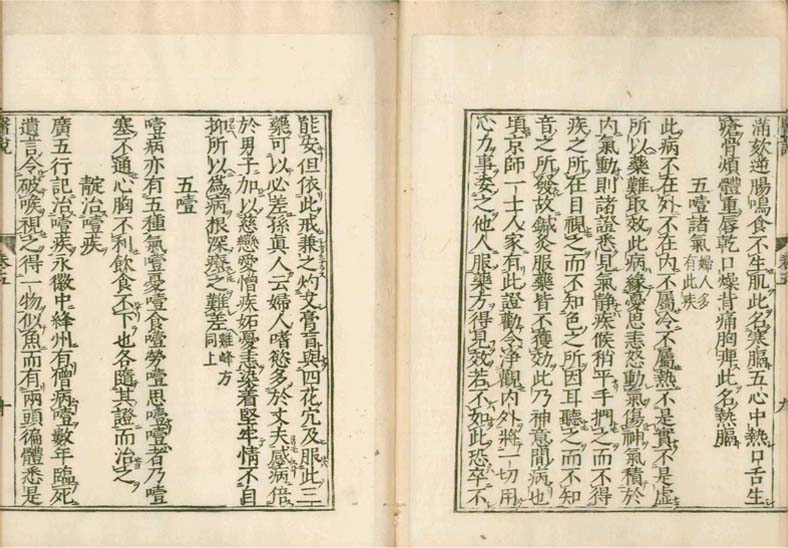 醫說 卷五 九
滿欬逆腸鳴食不生肌此名寒膈五心中熱口舌生
瘡骨煩體重脣乾口燥背痛胸痺此名熱膈
五噎諸氣 婦人多有此疾
此病不在外不在內不屬冷不屬熱不是實不是虛
所以藥難取效此病緣憂思恚怒動氣傷神氣積於
內氣動則諸證悉見氣靜疾候稍平手捫之而不得
疾之所在目視之而不知色之所因耳聽之而不知
音之所發故鍼灸服藥皆不獲効此乃神意間病也
頃京師一士人家有此證勸令淨觀內外將一切用
心力事委之他人服藥方得見效若不如此恐卒不
能安但依此戒兼之灼艾膏肓與四花穴及服此三
藥可以必差孫真人云婦人嗜慾多於丈夫感病倍
於男子加以慈戀愛憎疾妬憂恚染着堅牢情不自
抑所以爲病根深療之難差 雞峰方 同上
五噎
噎病亦有五種氣噎憂噎食噎勞噎思噎噎者乃噎
塞不通心胸不利飲食不下也各隨其證而治之
靛治噎疾
廣五行記治噎疾永徽中絳州有僧病噎數年臨死
遺言令破喉視之得一物似魚而有兩頭徧體悉是
醫說 卷五 十